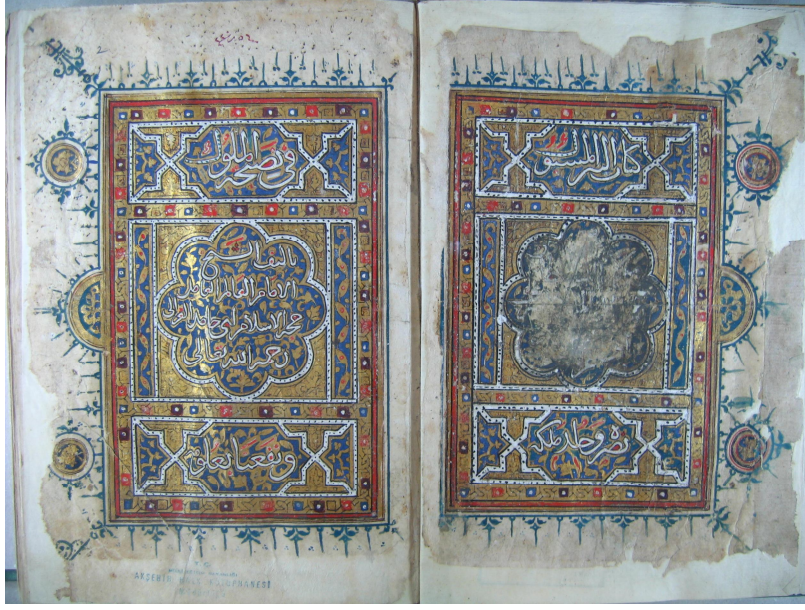 كتاب التبر المسبوك
نصره وخلد ملكه
في نصيحة الملوك
تاليف الشيخ
الامام العالم العامل
حجة الاسلام ابي حامد الغزالي
رحمه الله تعالى
ونفعنا بعلومه
AKŞEHİR